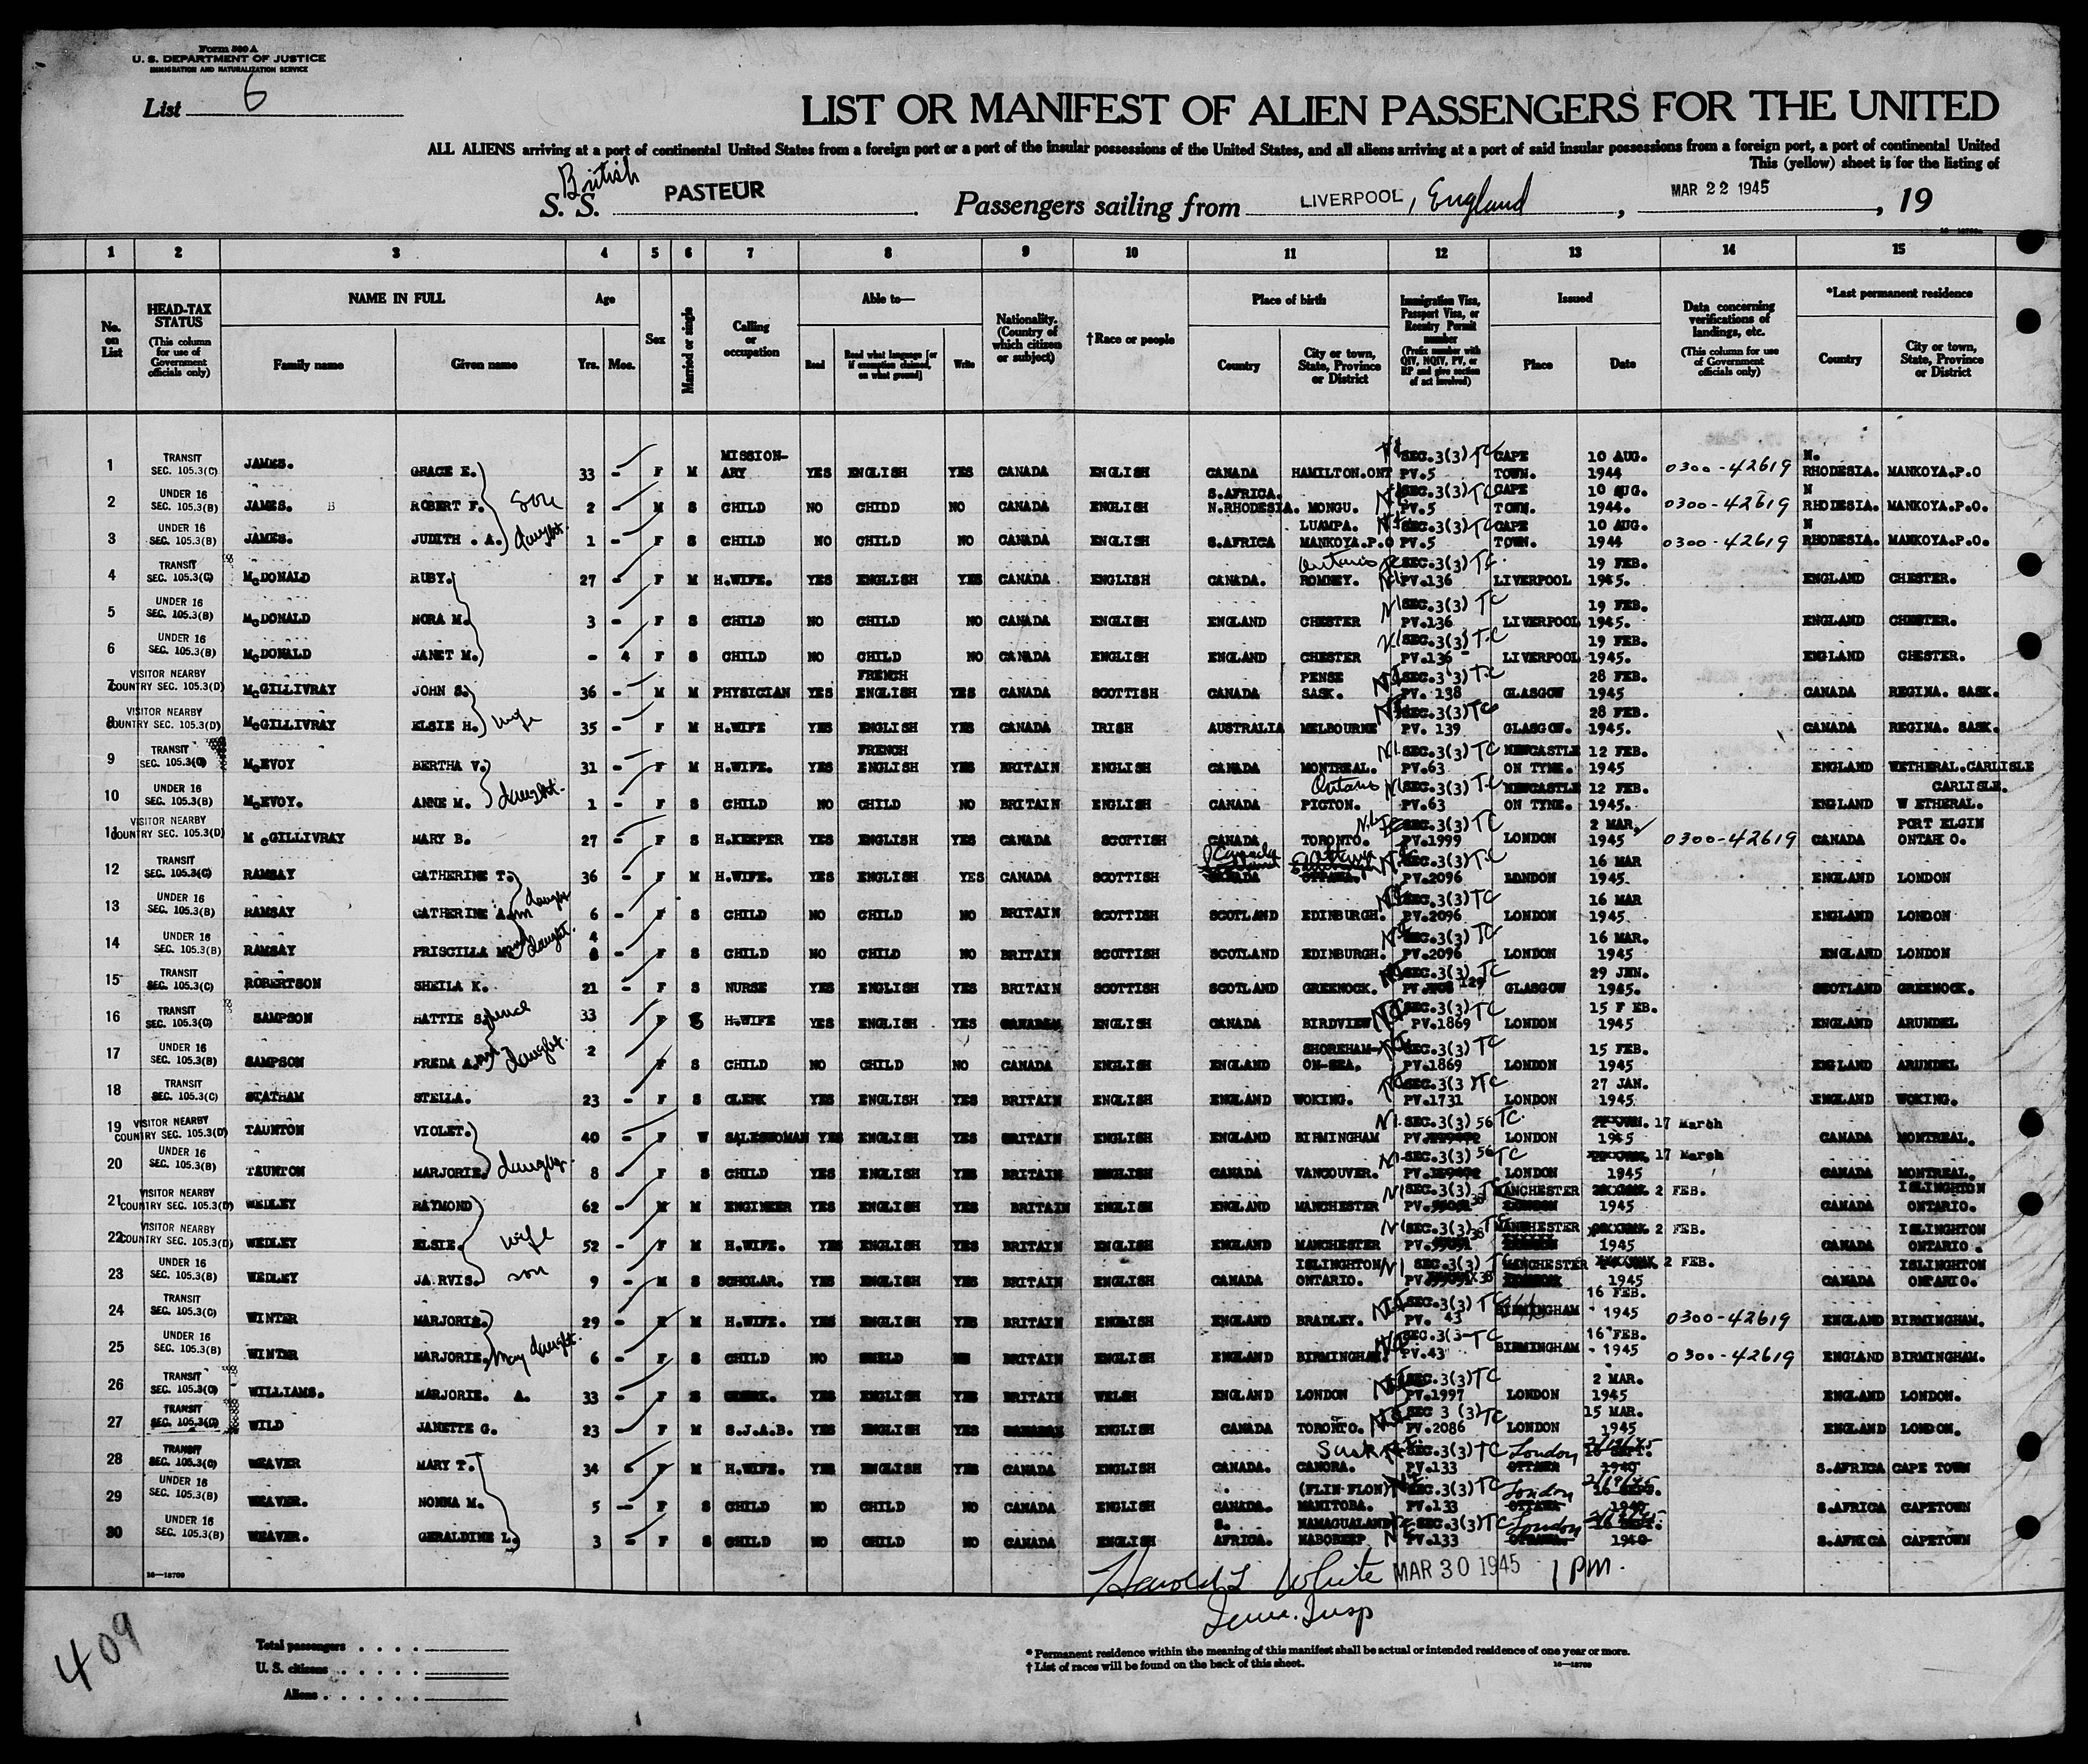 Form 500 A
U. S. DEPARTMENT OF JUSTICE
IMMIGRATION AND NATURALIZATION SERVICE
List 6
LIST OR MANIFEST OF ALIEN PASSENGERS FOR THE UNITED
ALL ALIENS arriving at a port of continental United States from a foreign port or a port of the insular possessions of the United States, and all aliens arriving at a port of said insular possessions from a foreign port, a port of continental United
This (yellow) sheet is for the listing of
British
S. S. PASTEUR Passengers sailing from LIVERPOOL, England, MAR 22 1945, 19
1 2 3 4 5 6 7 8 9 10 11 12 13 14 15
No. on List
HEAD-TAX STATUS (This column for use of Government officials only)
NAME IN FULL Family name Given name
Age Yrs. Mos.
Sex
Married or single
Calling or occupation
Able to— Read Read what language [or if exemption claimed, on what ground] Write
Nationality. (Country of which citizen or subject)
†Race or people
Place of birth Country City or town, State, Province or District
Immigration Visa, Passport Visa, or Reentry Permit number (Prefix number with QIV, NQIV, PV, or RP and give section of act involved)
Issued Place Date
Data concerning verifications of landings, etc. (This column for use of Government officials only)
*Last permanent residence Country City or town, State, Province or District
1 TRANSIT SEC. 105.3(C) JAMES. GRACE E. 33 - F M MISSION-ARY YES ENGLISH YES CANADA ENGLISH CANADA HAMILTON.ONT SEC.3(3) TC PV.5 CAPE TOWN. 10 AUG. 1944 0300-42619 N. RHODESIA. MANKOYA.P.O
2 UNDER 16 SEC. 105.3(B) JAMES. B ROBERT F. son 2 - M S CHILD NO CHIDD NO CANADA ENGLISH S.AFRICA. N.RHODESIA. MONGU. SEC.3(3) TC PV.5 CAPE TOWN. 10 AUG. 1944. 0300-42619 N RHODESIA. MANKOYA.P.O.
3 UNDER 16 SEC. 105.3(B) JAMES. JUDITH . A. daught. 1 - F S CHILD NO CHILD NO CANADA ENGLISH S.AFRICA LUAMPA. MANKOYA.P.O SEC.3(3) TC PV.5 CAPE TOWN. 10 AUG. 1944 0300-42619 N RHODESIA. MANKOYA.P.O.
4 TRANSIT SEC. 105.3(C) McDONALD RUBY. 27 - F M H.WIFE. YES ENGLISH YES CANADA ENGLISH CANADA. Ontario ROMNEY. SEC.3(3) TC. PV.136 LIVERPOOL 19 FEB. 1945. ENGLAND CHESTER.
5 UNDER 16 SEC. 105.3(B) McDONALD NORA M. 3 - F S CHILD NO CHILD NO CANADA ENGLISH ENGLAND CHESTER SEC.3(3) TC PV.136 LIVERPOOL 19 FEB. 1945. ENGLAND CHESTER.
6 UNDER 16 SEC. 105.3(B) McDONALD JANET M. - 4 F S CHILD NO CHILD NO CANADA ENGLISH ENGLAND CHESTER SEC.3(3) T.C PV.136 LIVERPOOL 19 FEB. 1945. ENGLAND CHESTER.
7 VISITOR NEARBY COUNTRY SEC. 105.3(D) McGILLIVRAY JOHN S. 36 - M M PHYSICIAN YES FRENCH ENGLISH YES CANADA SCOTTISH CANADA PENSE SASK. SEC.3(3) T.C PV. 138 GLASGOW 28 FEB. 1945 CANADA REGINA. SASK.
8 VISITOR NEARBY COUNTRY SEC. 105.3(D) McGILLIVRAY ELSIE H. wife 35 - F M H.WIFE YES ENGLISH YES CANADA IRISH AUSTRALIA MELBOURNE SEC.3(3) TC PV. 139 GLASGOW. 28 FEB. 1945. CANADA REGINA. SASK.
9 TRANSIT SEC. 105.3(C) McEVOY BERTHA V. 31 - F M H.WIFE. YES FRENCH ENGLISH YES BRITAIN ENGLISH CANADA MONTREAL. SEC.3(3) TC PV.63 NEWCASTLE ON TYNE. 12 FEB. 1945 ENGLAND WETHERAL.CARLISLE
10 UNDER 16 SEC. 105.3(B) McEVOY. ANNE M. daught. 1 - F S CHILD NO CHILD NO BRITAIN ENGLISH CANADA Ontario PICTON. SEC.3(3) T.C PV.63 NEWCASTLE ON TYNE. 12 FEB. 1945. ENGLAND CARLISLE. W ETHERAL.
11 VISITOR NEARBY COUNTRY SEC. 105.3(D) M cGILLIVRAY MARY B. 27 - F S H.KEEPER YES ENGLISH YES CANADA SCOTTISH CANADA TORONTO. SEC.3(3) TC PV.1999 LONDON 2 MAR. 1945 0300-42619 CANADA PORT ELGIN ONTAH O.
12 TRANSIT SEC. 105.3(C) RAMSAY CATHERINE T. 36 - F M H.WIFE. YES ENGLISH YES CANADA SCOTTISH Canada CANADA Ottawa OTTAWA. SEC.3(3) T.C PV.2096 LONDON 16 MAR 1945. ENGLAND LONDON
13 UNDER 16 SEC. 105.3(B) RAMSAY CATHERINE Ann daught 6 - F S CHILD NO CHILD NO BRITAIN SCOTTISH SCOTLAND EDINBURGH. SEC.3(3) TC PV.2096 LONDON 16 MAR 1945. ENGLAND LONDON
14 UNDER 16 SEC. 105.3(B) RAMSAY PRISCILLA M. daught. 4 - F S CHILD NO CHILD NO BRITAIN SCOTTISH SCOTLAND EDINBURGH. SEC.3(3) TC PV.2096 LONDON 16 MAR. 1945 ENGLAND LONDON
15 TRANSIT SEC. 105.3(C) ROBERTSON SHEILA K. 21 - F S NURSE YES ENGLISH YES BRITAIN SCOTTISH SCOTLAND GREENOCK. SEC.3(3) TC PV 129 GLASGOW 29 JEN. 1945. SCOTLAND GREENOCK.
16 TRANSIT SEC. 105.3(C) SAMPSON HATTIE Spence 33 F H.WIFE YES ENGLISH YES ENGLISH CANADA BIRDVIEW SEC.3(3) TC PV.1869 LONDON 15 F EB. 1945 ENGLAND ARUNDEL
17 UNDER 16 SEC. 105.3(B) SAMPSON FREDA Ann daught. 2 F S CHILD NO CHILD NO CANADA ENGLISH ENGLAND SHOREHAM-ON-SEA. SEC.3(3) TC PV.1869 LONDON 15 FEB. 1945 ENGLAND ARUNDEL
18 TRANSIT SEC. 105.3(C) STATHAM STELLA. 23 - F S CLERK YES ENGLISH YES BRITAIN ENGLISH ENGLAND WOKING. SEC.3(3) TC PV.1731 LONDON 27 JAN. 1945 ENGLAND WOKING.
19 VISITOR NEARBY COUNTRY SEC. 105.3(D) TAUNTON VIOLET. 40 - F W SALESWOMAN YES ENGLISH YES BRITAIN ENGLISH ENGLAND BIRMINGHAM SEC.3(3) 56 TC. PV LONDON 17 March 1945 CANADA MONTREAL.
20 UNDER 16 SEC. 105.3(B) TAUNTON MARJORIE. daught. 8 - F S CHILD YES ENGLISH YES BRITAIN ENGLISH CANADA VANCOUVER. SEC.3(3) 56 TC PV. LONDON 17 March 1945 CANADA MONTREAL.
21 VISITOR NEARBY COUNTRY SEC. 105.3(D) WEDLEY RAYMOND 62 - M M ENGINEER YES ENGLISH YES BRITAIN ENGLISH ENGLAND MANCHESTER SEC.3(3) TC PV. 38 MANCHESTER 2 FEB. 1945 CANADA ISLINGHTON ONTARIO.
22 VISITOR NEARBY COUNTRY SEC. 105.3(D) WEDLEY ELSIE. wife 52 - F M H.WIFE. YES ENGLISH YES BRITAIN ENGLISH ENGLAND MANCHESTER SEC.3(3) TC PV. 38 MANCHESTER 2 FEB. 1945 CANADA ISLINGHTON ONTARIO .
23 UNDER 16 SEC. 105.3(B) WEDLEY JA.RVIS. son 9 - M S SCHOLAR. YES ENGLISH YES BRITAIN ENGLISH CANADA ISLINGHTON ONTARIO. SEC.3(3) TC PV 38 MANCHESTER 2 FEB. 1945 CANADA ISLINGHTON ONTARIO.
24 TRANSIT SEC. 105.3(C) WINTER MARJORIE. 29 - F M H.WIFE. YES ENGLISH YES BRITAIN ENGLISH ENGLAND BRADLEY. SEC.3(3) TC PV. 43 BIRMINGHAM 16 FEB. 1945 0300-42619 ENGLAND BIRMINGHAM.
25 UNDER 16 SEC. 105.3(B) WINTER MARJORIE. May daught. 6 - F S CHILD NO NO BRITAIN ENGLISH ENGLAND BIRMINGHAM. SEC.3(3 TC PV.43 BIRMINGHAM 16 FEB. 1945 0300-42619 ENGLAND BIRMINGHAM.
26 TRANSIT SEC. 105.3(C) WILLIAMS. MARJORIE. A. 33 - F S CLERK. YES ENGLISH YES BRITAIN WELSH ENGLAND LONDON SEC.3(3) TC PV.1997 LONDON 2 MAR. 1945 ENGLAND LONDON.
27 TRANSIT SEC. 105.3(C) WILD JANETTE G. 23 - F M S.J.A.B. YES ENGLISH YES ENGLISH CANADA TORONTO. SEC 3 (3) TC PV.2086 LONDON 15 MAR. 1945 ENGLAND LONDON.
28 TRANSIT SEC. 105.3(C) WEAVER MARY T. 34 F M H.WIFE. YES ENGLISH YES CANADA ENGLISH CANADA. Sask CANORA. SEC.3(3) TC PV.133 London OTTAWA 2/19/45 16 SEPT. 1940 S.AFRICA CAPE TOWN
29 UNDER 16 SEC. 105.3(B) WEAVER. NONNA M. 5 - F S CHILD NO CHILD NO CANADA ENGLISH CANADA. (FLIN-FLON) MANITOBA. SEC.3(3) TC PV.133 London OTTAWA 2/19/45 16 SEPT. 1940 S.AFRICA CAPETOWN
30 UNDER 16 SEC. 105.3(B) WEAVER. GERALDINE L. 3 - F S CHILD NO CHILD NO CANADA ENGLISH S. AFRICA. NAMAGUALAND NABOBEEP SEC.3(3) TC PV.133 London OTTAWA. 16 SEPT. 1940 S.AFRICA CAPETOWN
16—18700
Harold L White MAR 30 1945 1 PM.
Imm. Insp
409
Total passengers . . . .
U. S. citizens . . . . . .
Aliens . . . . . . .
* Permanent residence within the meaning of this manifest shall be actual or intended residence of one year or more.
† List of races will be found on the back of this sheet.
16—18700